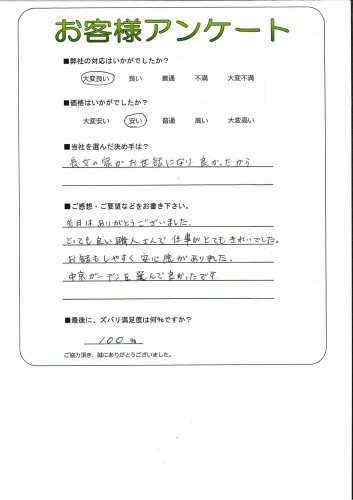 お客様アンケート
■弊社の対応はいかがでしたか？
大変良い 良い 普通 不満 大変不満
■価格はいかがでしたか？
大変安い 安い 普通 高い 大変高い
■当社を選んだ決め手は？
長女の家がお世話になり良かったから
■ご感想・ご要望などをお書き下さい。
先日はありがとうございました。
とっても良い職人さんで仕事がとてもきれいでした。
お話もしやすく安心感がありました。
中京ガーデンを選んで良かったです
■最後に、ズバリ満足度は何%ですか？
100 %
ご協力頂き、誠にありがとうございました。